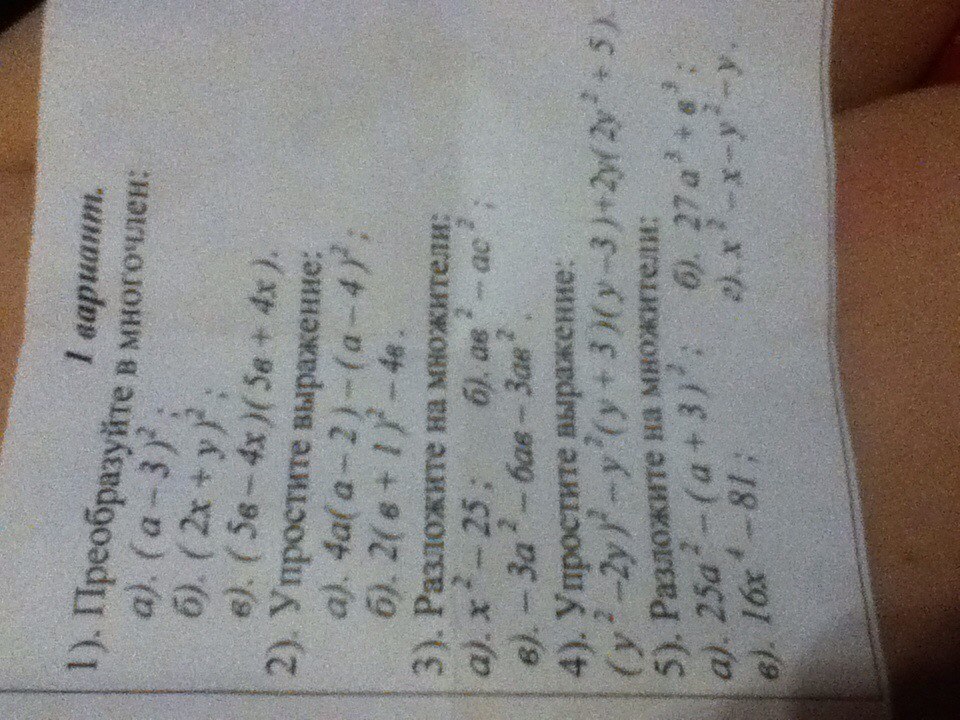 1 вариант.
1). Преобразуйте в многочлен:
а). (а – 3)²;
б). (2х + у)²;
в). (5в – 4х)(5в + 4х).
2). Упростите выражение:
а). 4а(а – 2) – (а – 4)²;
б). 2(в + 1)² – 4в.
3). Разложите на множители:
а). х² – 25; б). ав² – ас²;
в). – 3а² – 6ав – 3ав².
4). Упростите выражение:
(у² – 2у)² – у²(у + 3)(у – 3) + 2у(2у² + 5).
5). Разложите на множители:
а). 25а² – (а + 3)²; б). 27а³ + в³;
в). 16х⁴ – 81; г). х² – х – у² – у.